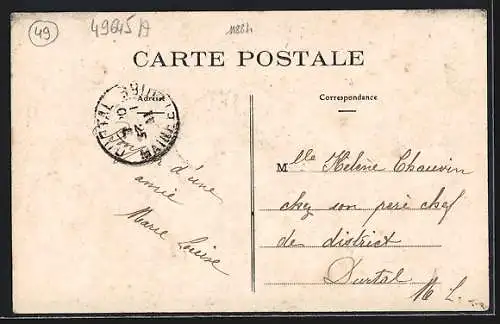 49
49645 A
CARTE POSTALE
Adresse
Correspondance
DURTAL
MAINE
d'une
amie
Marie Louise
Mlle Hélène Chauvin
chez son père chef
de district
Durtal
M L.